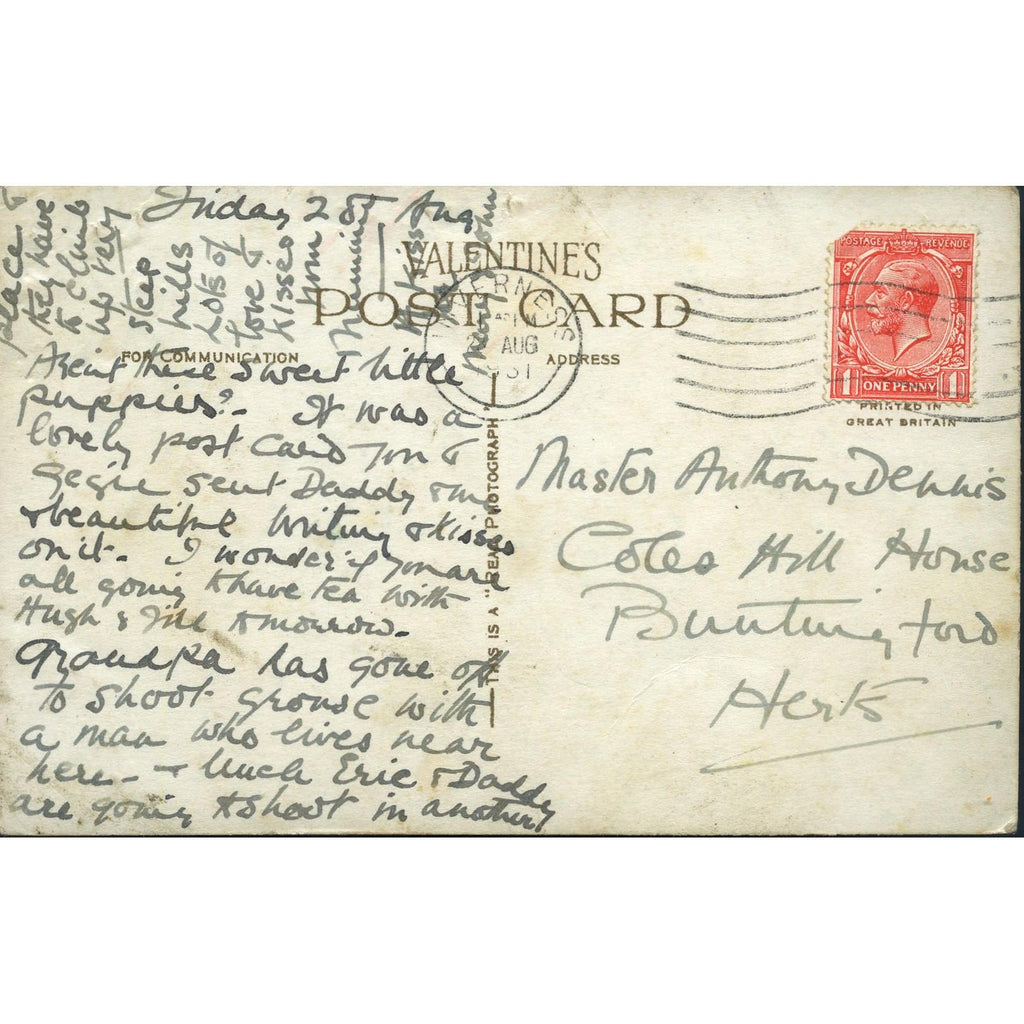 Friday 28th Aug
VALENTINE'S
POST CARD
FOR COMMUNICATION
ADDRESS
INVERNESS
AUG
31
POSTAGE REVENUE
1 ONE PENNY 1
PRINTED IN
GREAT BRITAIN
THIS IS A "REAL PHOTOGRAPH"
Arent these sweet little
puppies? - It was a
lovely post card you &
sent Daddy & me
& beautiful writing & kisses
on it - I wonder if you are
all going to have tea with
Hugh & Jill tomorrow -
Grandpa has gone off
to shoot grouse with
a man who lives near
here - & Uncle Eric & Daddy
are going to shoot in another
place &
they have
to climb
up very
steep
hills
Lots of
love &
kisses
from
Mummy
Kisses
from
Master Anthony Dennis
Coles Hill House
Buntingford
Herts